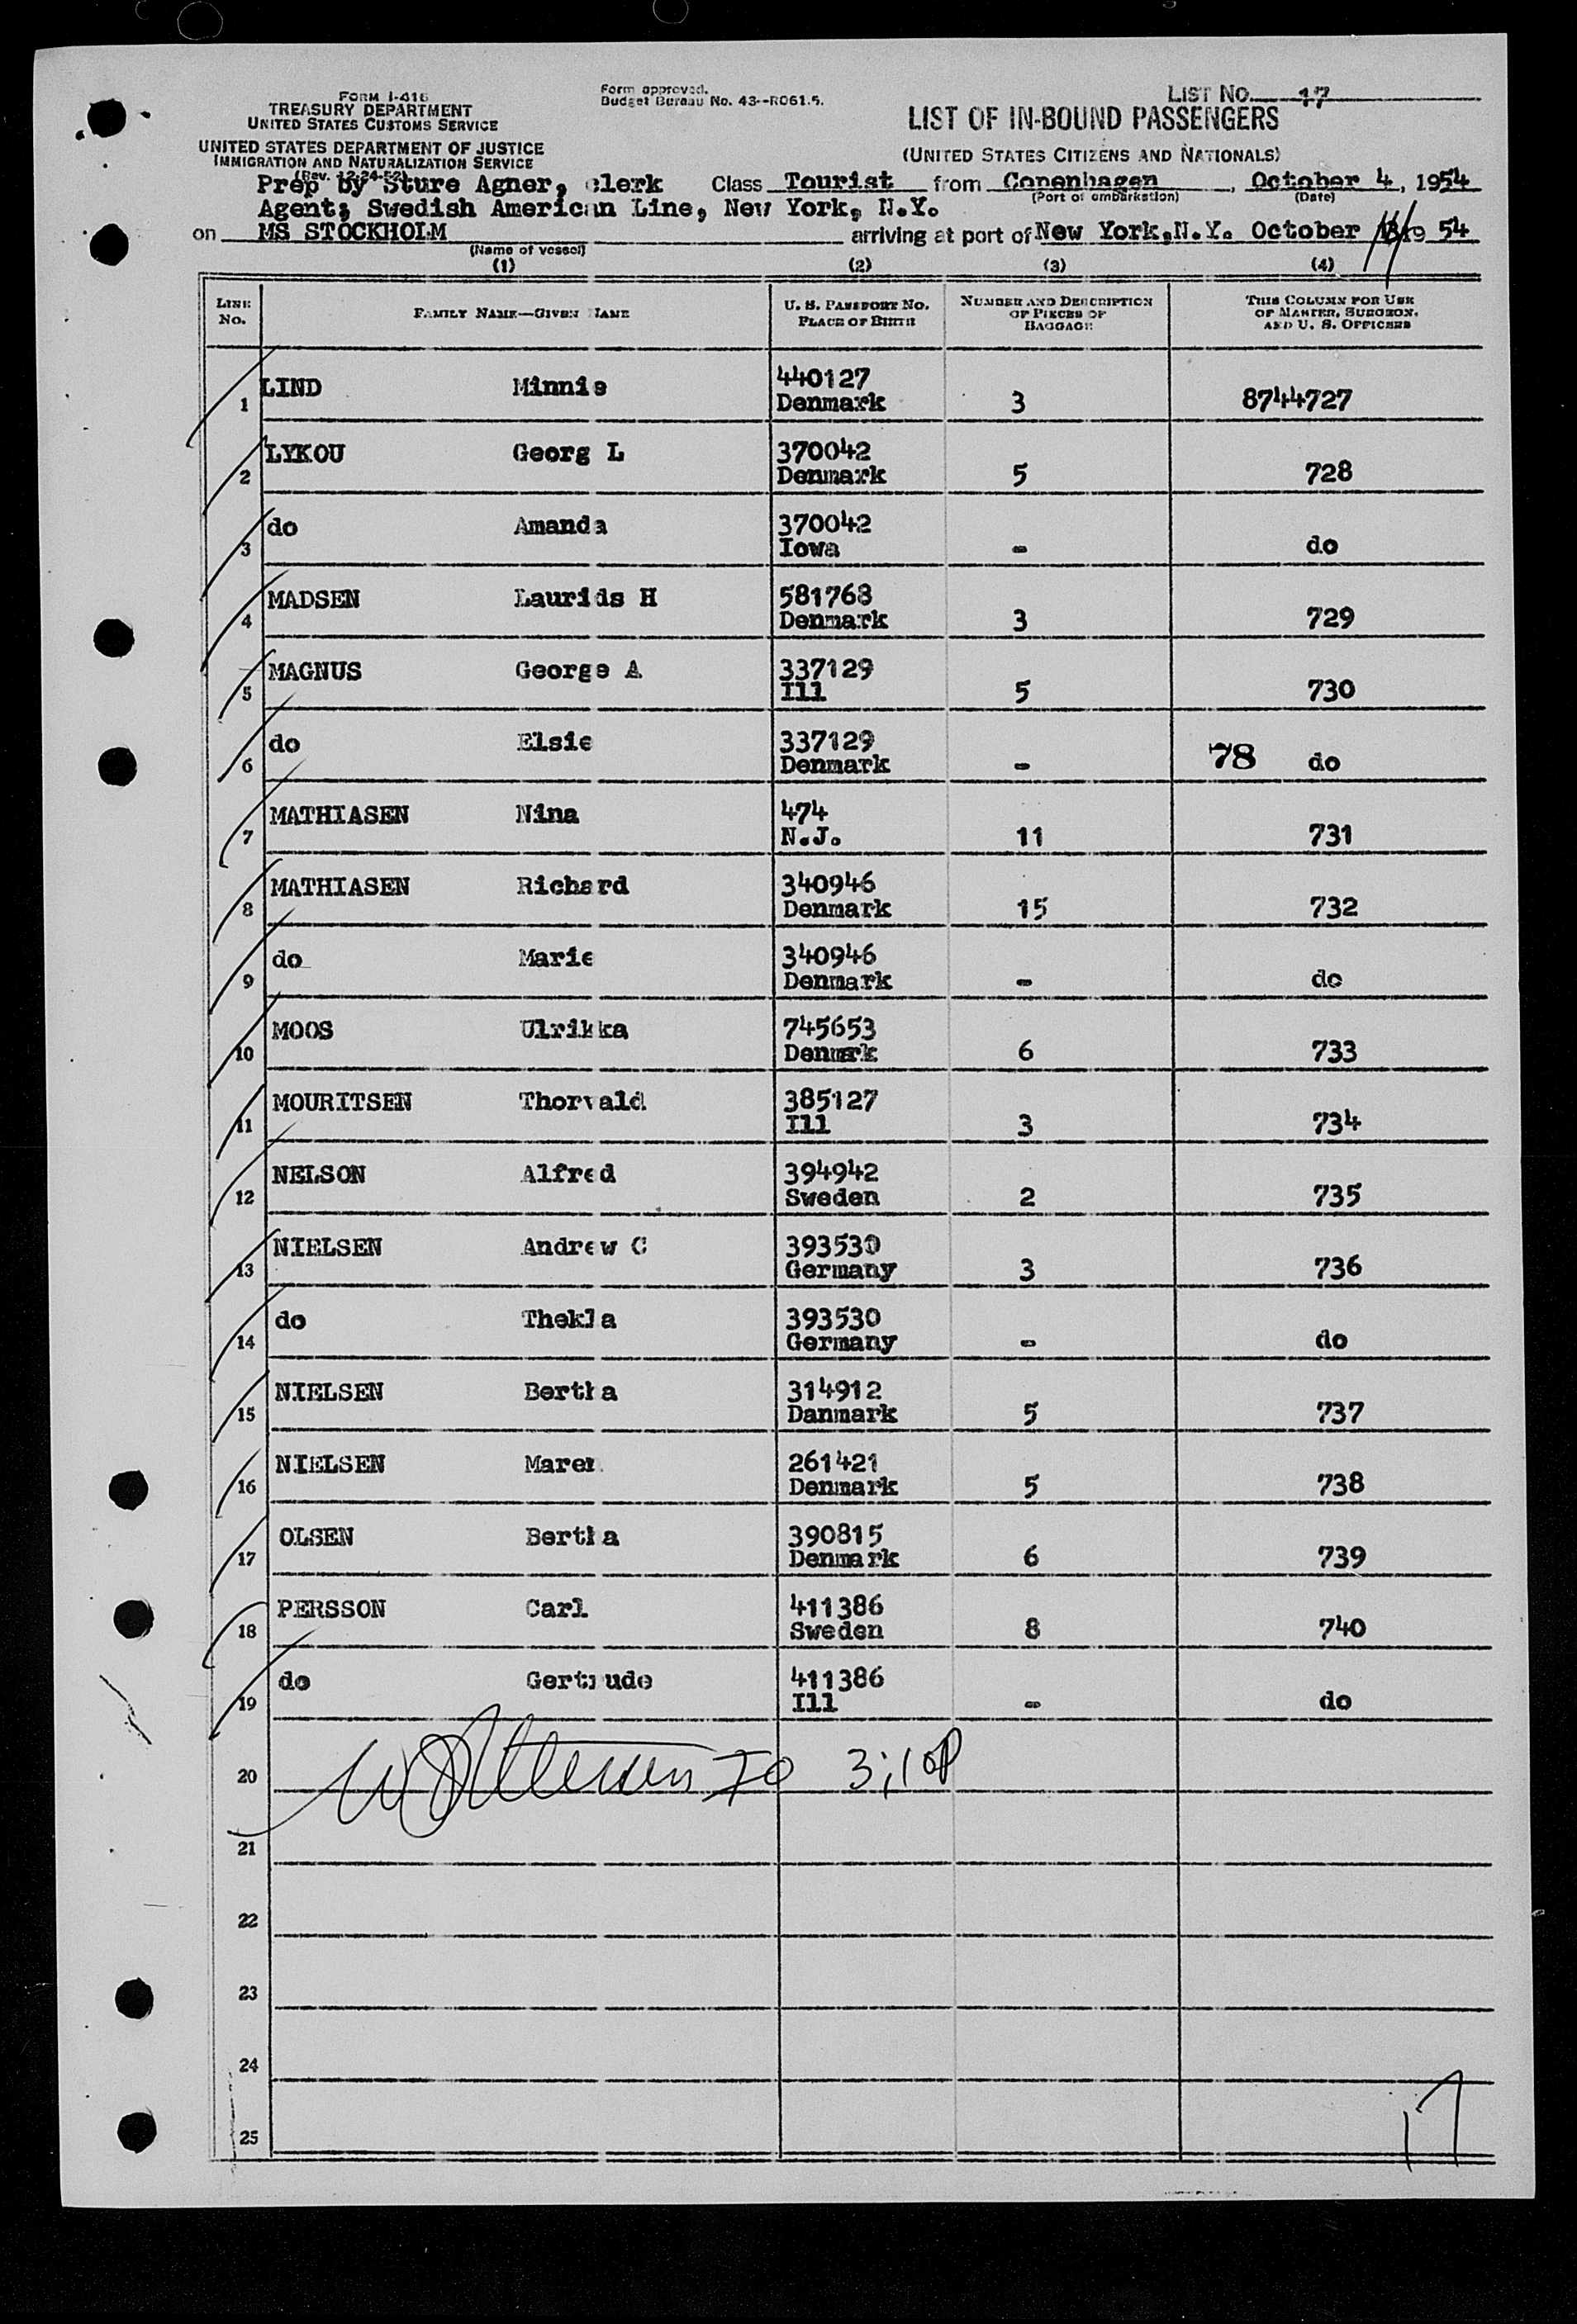 FORM I-416
TREASURY DEPARTMENT
UNITED STATES CUSTOMS SERVICE
UNITED STATES DEPARTMENT OF JUSTICE
IMMIGRATION AND NATURALIZATION SERVICE
(Rev. 12-24-52)
Form approved.
Budget Bureau No. 43--R061.5.
LIST NO. 17
LIST OF IN-BOUND PASSENGERS
(UNITED STATES CITIZENS AND NATIONALS)
Prep by Sture Agner, clerk Class Tourist from Copenhagen, October 4, 1954
(Port of embarkation) (Date)
Agent; Swedish American Line, New York, N.Y.
on MS STOCKHOLM arriving at port of New York,N.Y. October 19 54
(Name of vessel)
(1) (2) (3) (4)
LINE No. FAMILY NAME—GIVEN NAME U. S. PASSPORT NO. PLACE OF BIRTH NUMBER AND DESCRIPTION OF PIECES OF BAGGAGE THIS COLUMN FOR USE OF MASTER, SURGEON, AND U. S. OFFICERS
1 LIND Minnie 440127 Denmark 3 8744727
2 LYKOU Georg L 370042 Denmark 5 728
3 do Amanda 370042 Iowa - do
4 MADSEN Laurids H 581768 Denmark 3 729
5 MAGNUS George A 337129 Ill 5 730
6 do Elsie 337129 Denmark - 78 do
7 MATHIASEN Nina 474 N.J. 11 731
8 MATHIASEN Richard 340946 Denmark 15 732
9 do Marie 340946 Denmark - do
10 MOOS Ulrikka 745653 Denmark 6 733
11 MOURITSEN Thorvald 385127 Ill 3 734
12 NELSON Alfred 394942 Sweden 2 735
13 NIELSEN Andrew C 393530 Germany 3 736
14 do Thekla 393530 Germany - do
15 NIELSEN Bertha 314912 Danmark 5 737
16 NIELSEN Maren 261421 Denmark 5 738
17 OLSEN Bertha 390815 Denmark 6 739
18 PERSSON Carl 411386 Sweden 8 740
19 do Gertrude 411386 Ill - do
20
21
22
23
24
25
17